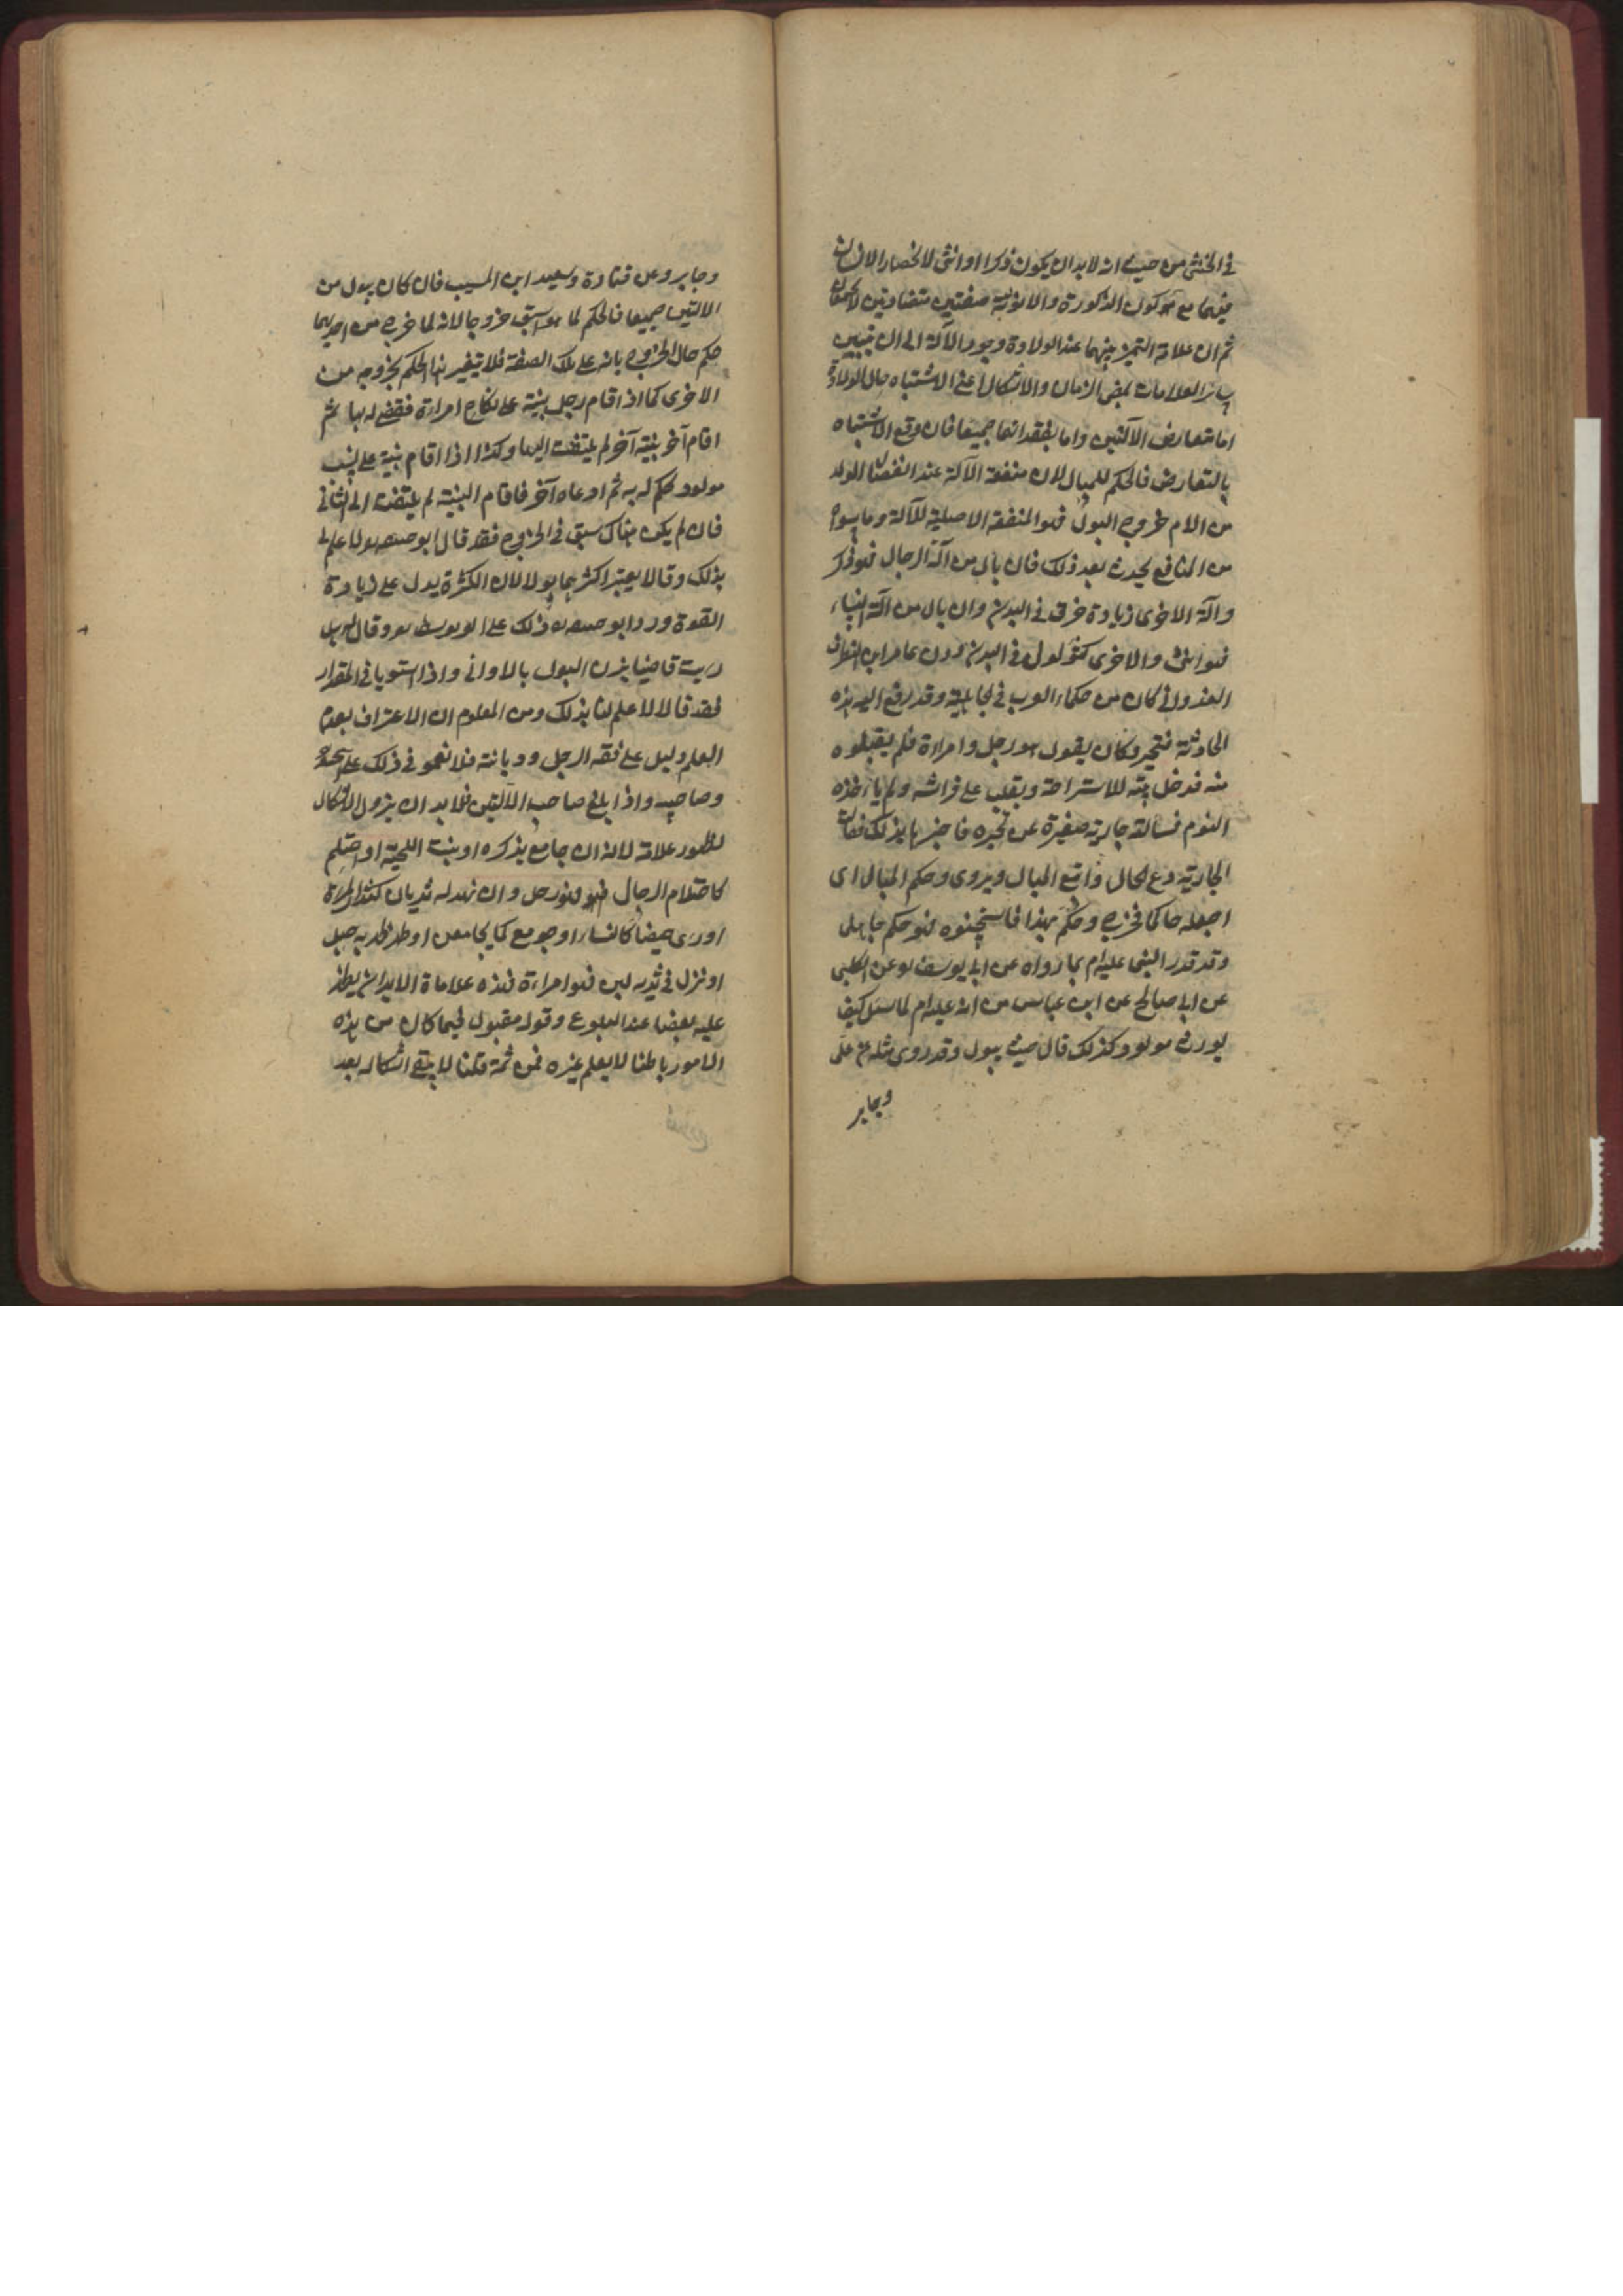 في الخنثى من حيث انه لا بد ان يكون ذكرا او انثى لانحصار الانسان
فيهما مع كون الذكورة والانوثة صفتين متضادتين لا تجتمعان
ثم ان علامة التميز بينهما عند الولادة وجود الآلة الى ان يتبين
سائر العلامات بمضى الزمان والاشكال اعنى الاشتباه حال الولادة
اما بتعارض الآلتين واما بفقدانهما جميعا فان وقع الاشتباه
بالتعارض فالحكم للمبال لان منفعة الآلة عند انفصال الولد
من الام خروج البول فهو المنفعة الاصلية للآلة وما سواه
من المنافع يحدث بعد ذلك فان بال من آلة الرجال فهو ذكر
وآلة الاخرى زيادة خرق في البدن وان بال من آلة النساء
فهو انثى والاخرى كثولول في البدن روى ان عامر ابن الظرب
العدواني كان من حكماء العرب في الجاهلية وقد رفع اليه هذه
الحادثة فتحير وكان يقول هو رجل وامراءة فلم يقبلوه
منه فدخل بيته للاستراحة ويقلب على فراشه ولم ياءخذه
النوم فسالته جارية صغيرة عن تحيره فاخبرها بذلك فقالت
الجارية دع الحال واتبع المبال ويروى وحكم المبال اى
اجعله حاكما فخرج وحكم بهذا فاستحسنوه فهو حكم جاهلى
وقد قدر النبى عليه‌ام بما رواه عن ابى يوسف عن الكلبى
عن ابى صالح عن ابن عباس من انه عليه‌ام لما سئل كيف
يورث مولود كذلك قال حيث يبول وقد روى مثله عن على
وجابر
وجابر وعن قتادة وسعيد ابن المسيب فان كان يبول من
الالتين جميعا فالحكم لما هو اسبق خروجا لانه لما خرج من احديهما
حكم حال الخروج بانه على تلك الصفة فلا يتغير هذا الحكم بخروجه من
الاخرى كما اذا اقام رجل بينة على نكاح امراءة فقضى له بها ثم
اقام آخر بينة آخر لم يلتفت اليها وكذا اذا اقام بينة على نسب
مولود حكم له به ثم ادعاه آخر فاقام البينة لم يلتفت الى الثانى
فان لم يكن هناك سبق في الخروج فقد قال ابو حنيفة لا علم لى
بذلك وقالا يعتبر اكثرهما بولا لان الكثرة يدل على زيادة
القوة ورد ابو حنيفة ذلك على ابو يوسف وقال هل
رايت قاضيا يزن البول بالاوانى واذا استويا في المقدار
فقد قالا لا علم لنا بذلك ومن المعلوم ان الاعتراف بعدم
العلم دليل على فقه الرجل وديانته فلا نغمو في ذلك على
وصاحبيه واذا بلغ صاحب الآلتين فلا بد ان يزول الاشكال
لظهور علامة لانه ان جامع بذكره او نبت اللحية او احتلم
كاحتلام الرجال فهو رجل وان نهد له ثديان كثدى المراة
او راى حيضا كالنساء او جومع كما يجامعن او ظهر به حبل
او نزل في ثديه لبن فهو امراءة فهذه علاماة الابدان يظهر
عليه بعضا عند البلوغ وقوله مقبول فيما كان من هذه
الامور باطنا لا يعلم غيره فمن ثمة قلنا لا يبقى اشكاله بعد